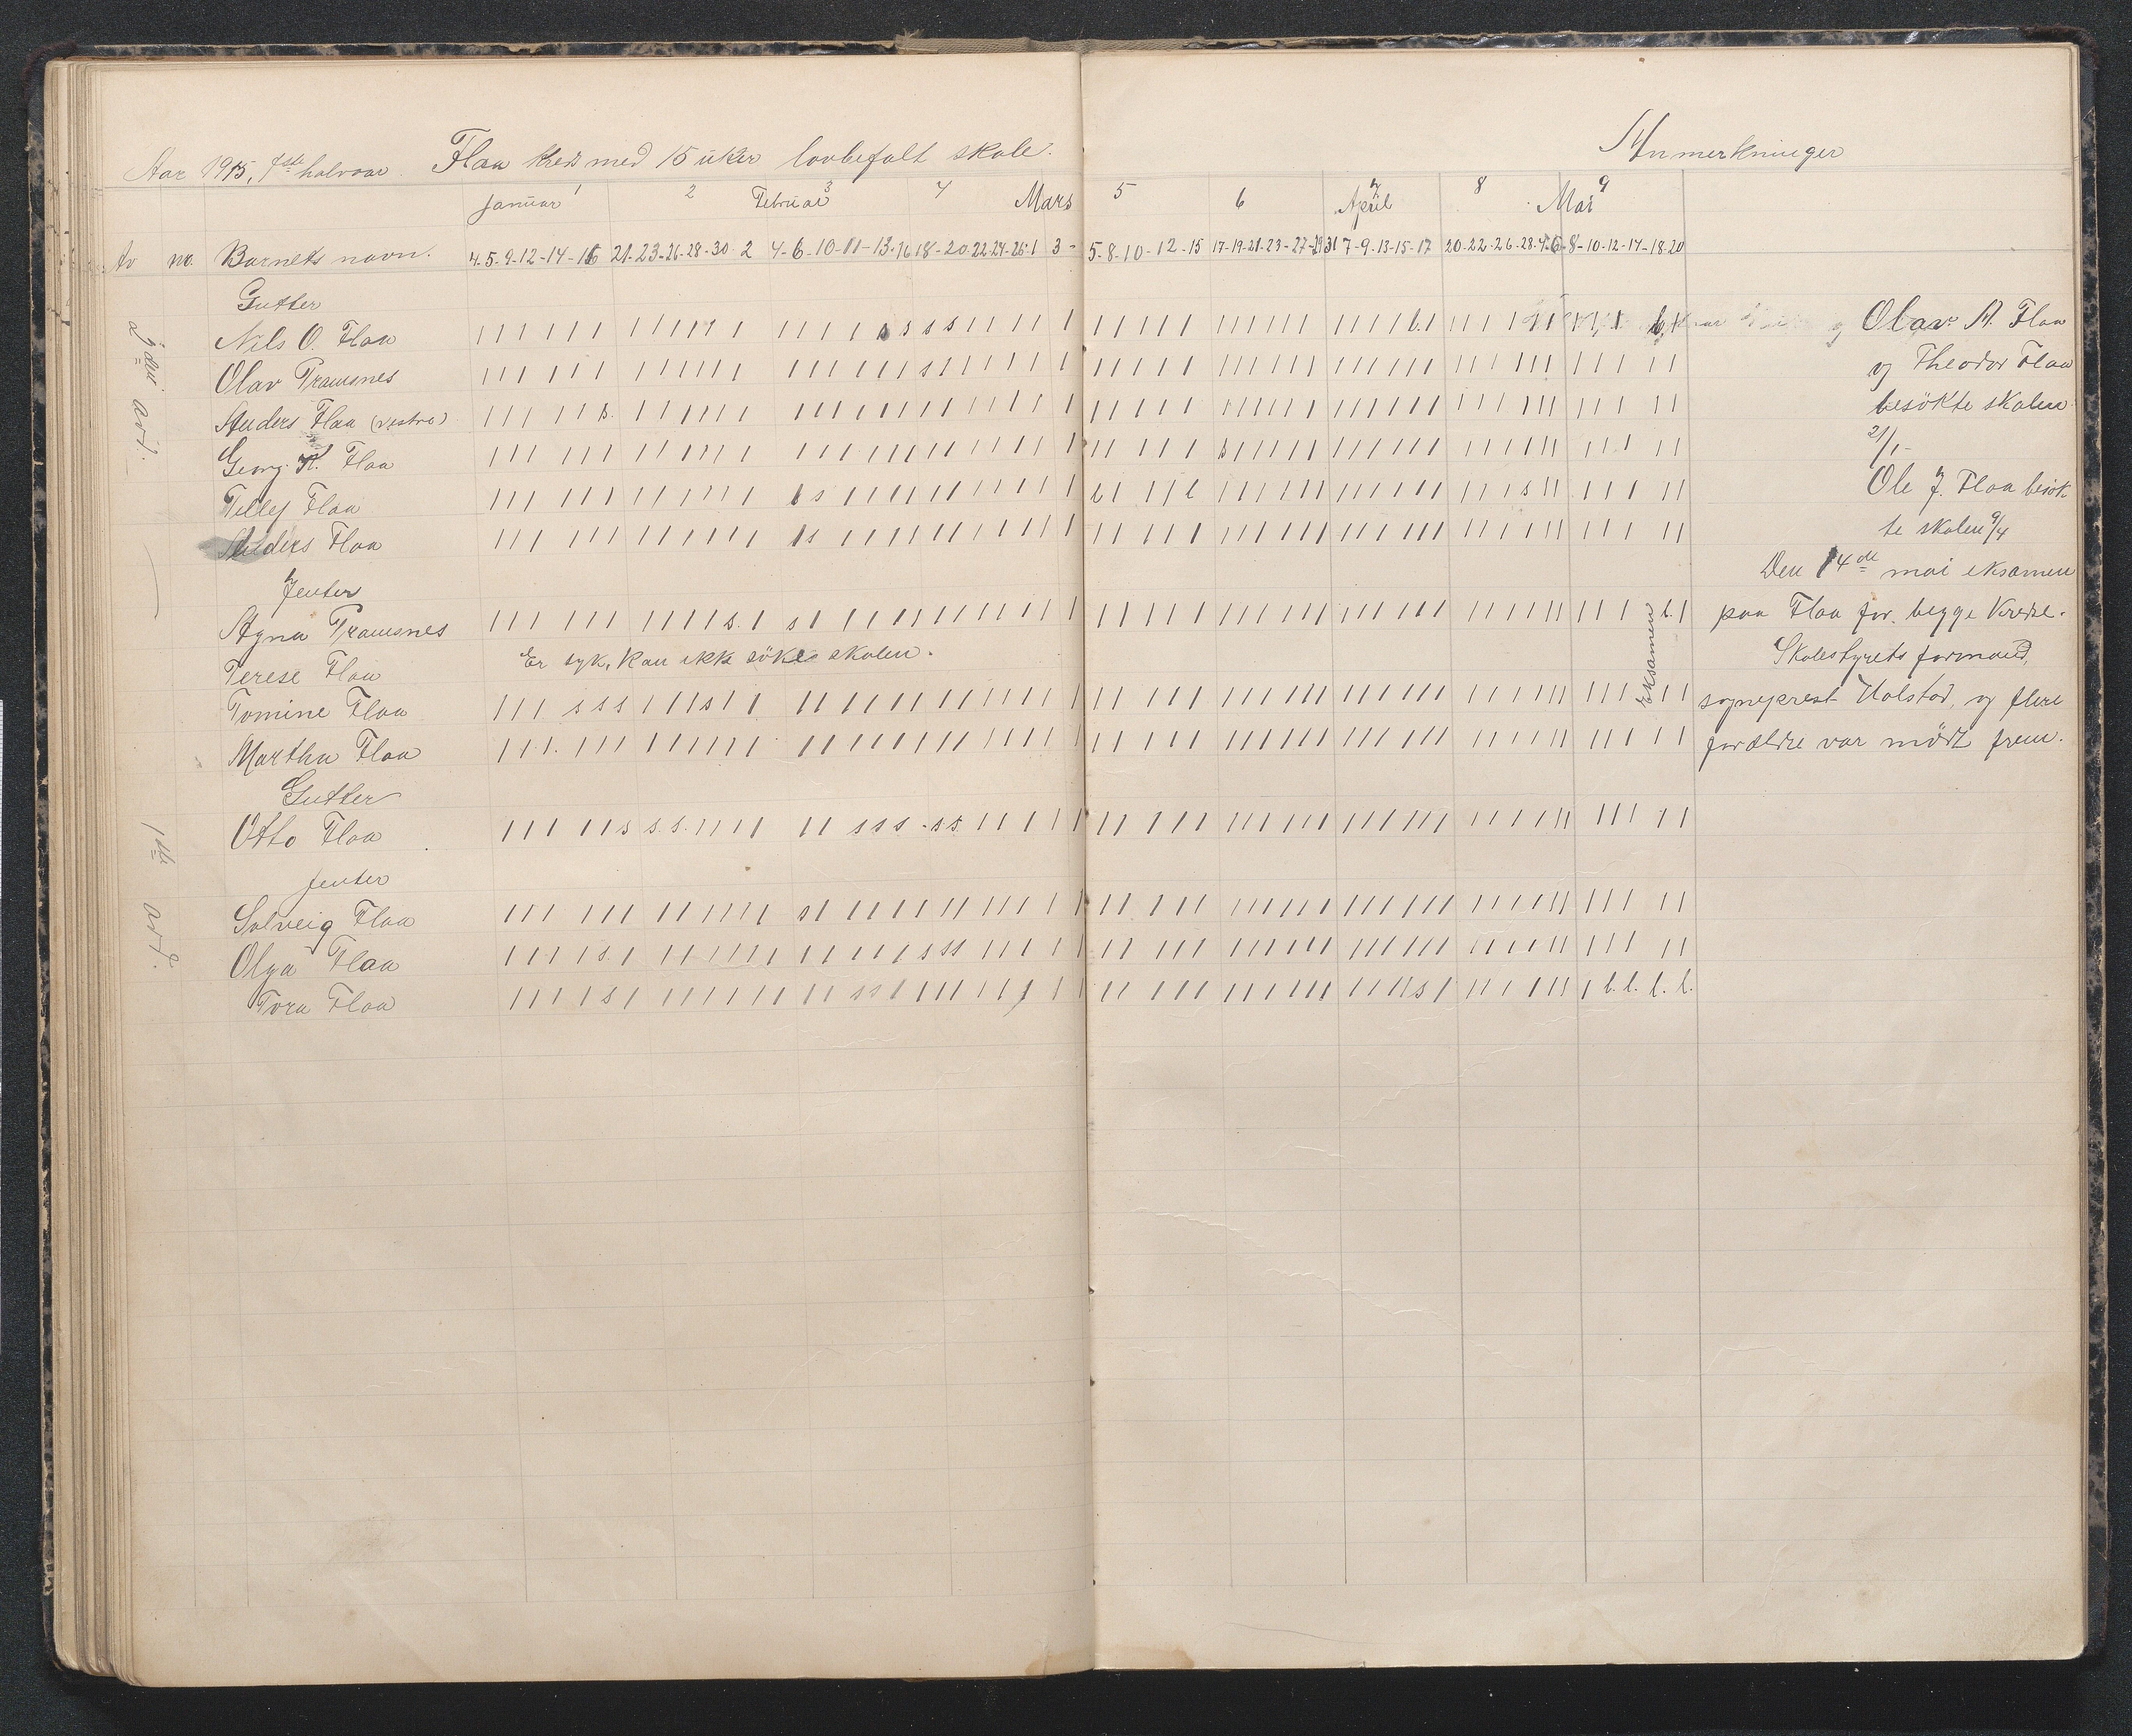 Aar 1915, 1ste halvaar. Flaa kreds med 15 uker lovbefalt skole.
Anmerkninger
Januar 1 2 Februar 3 4 Mars 5 6 April 7 8 Mai 9
Av no. Barnets navn. 4-5-9-12-14-16 21-23-26-28-30-2 4-6-10-11-13-16 18-20-22-24-26-1 3- 5-8-10-12-15 17-19-21-23-27-29 31 7-9-13-15-17 20-22-26-28-4-6 8-10-12-14-18-20
2den avd.
Gutter
Nils O. Flaa
Olav Tramsnes
Anders Flaa (vestre)
Georg K. Flaa
Telley Flaa
Anders Flaa
Jenter
Agna Tramsnes
Terese Flaa Er syk, kan ikke søke skolen.
Tomine Flaa
Martha Flaa
1ste avd.
Gutter
Otto Flaa
Jenter
Solveig Flaa
Olga Flaa
Tora Flaa
Eksamen
Olav A. Flaa
og Theodor Flaa
besøkte skolen
21/1-
Ole J. Flaa besøk
te skolen 9/4
Den 14de mai eksamen
paa Flaa for begge kredse.
Skolestyrets formand,
sogneprest Holstad, og flere
forældre var mødt frem.